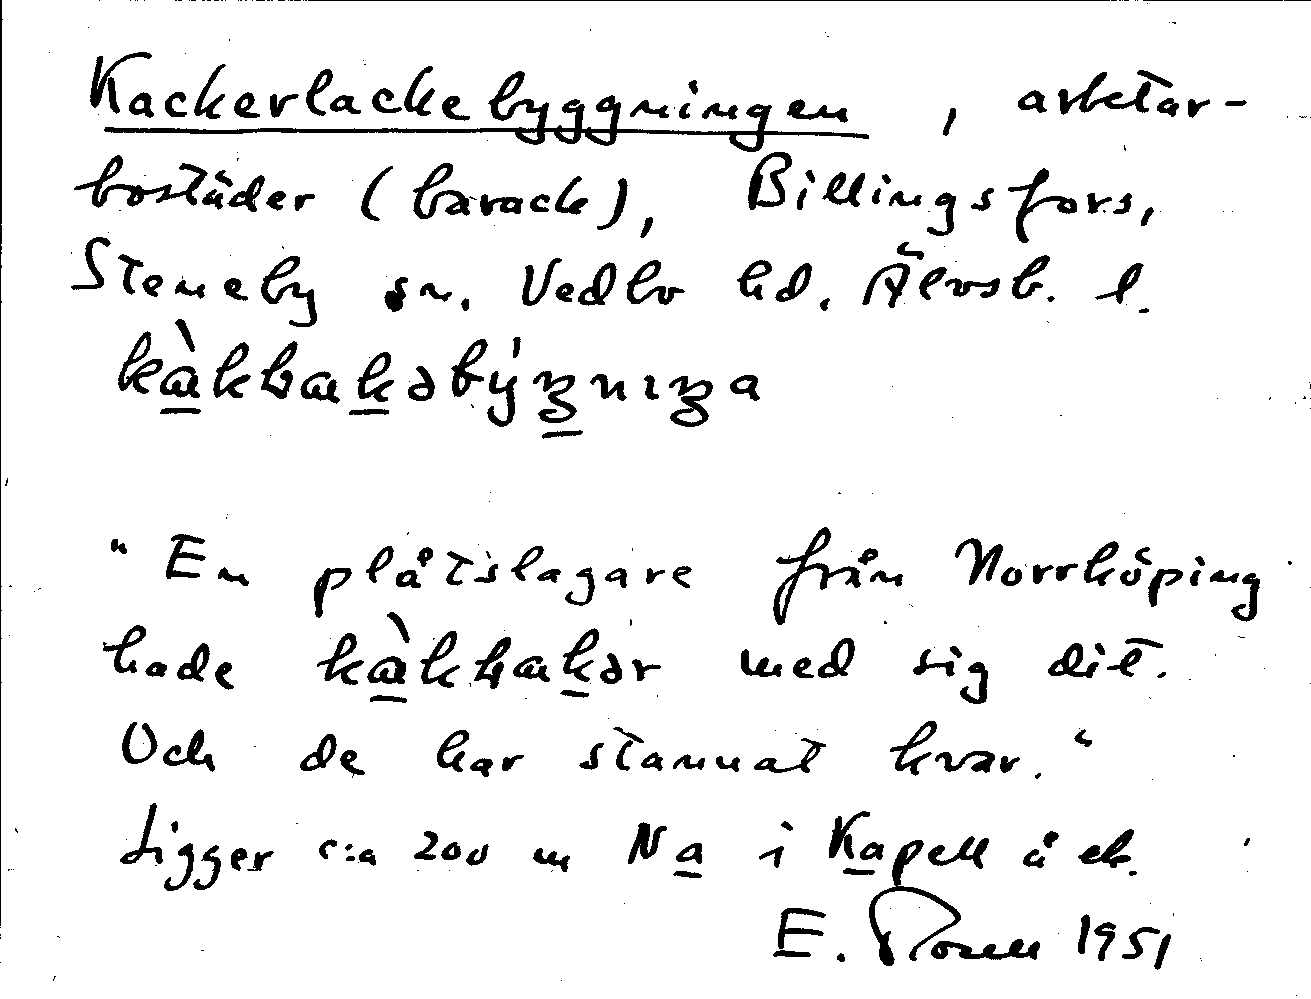 Kackerlackebyggningen, arbetar-
bostäder (barack), Billingsfors,
Steneby sn. Vedbo hd. Älvsb. l.
"En plåtslagare från Norrköping
hade med sig dit.
Och de har stannat kvar."
Ligger c:a 200 m N a i Kapell å ek.
E. Rosell 1951